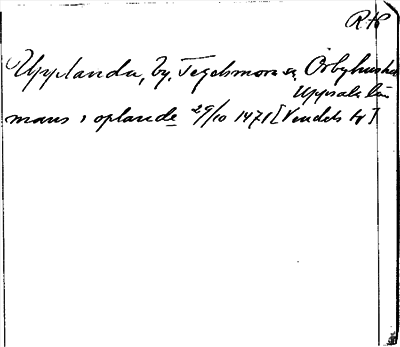 RH
Upplanda, by, Tegelsmora sn, Örbyhus hd
Uppsala län
mans i oplande 29/10 1471 [Vendels hd]